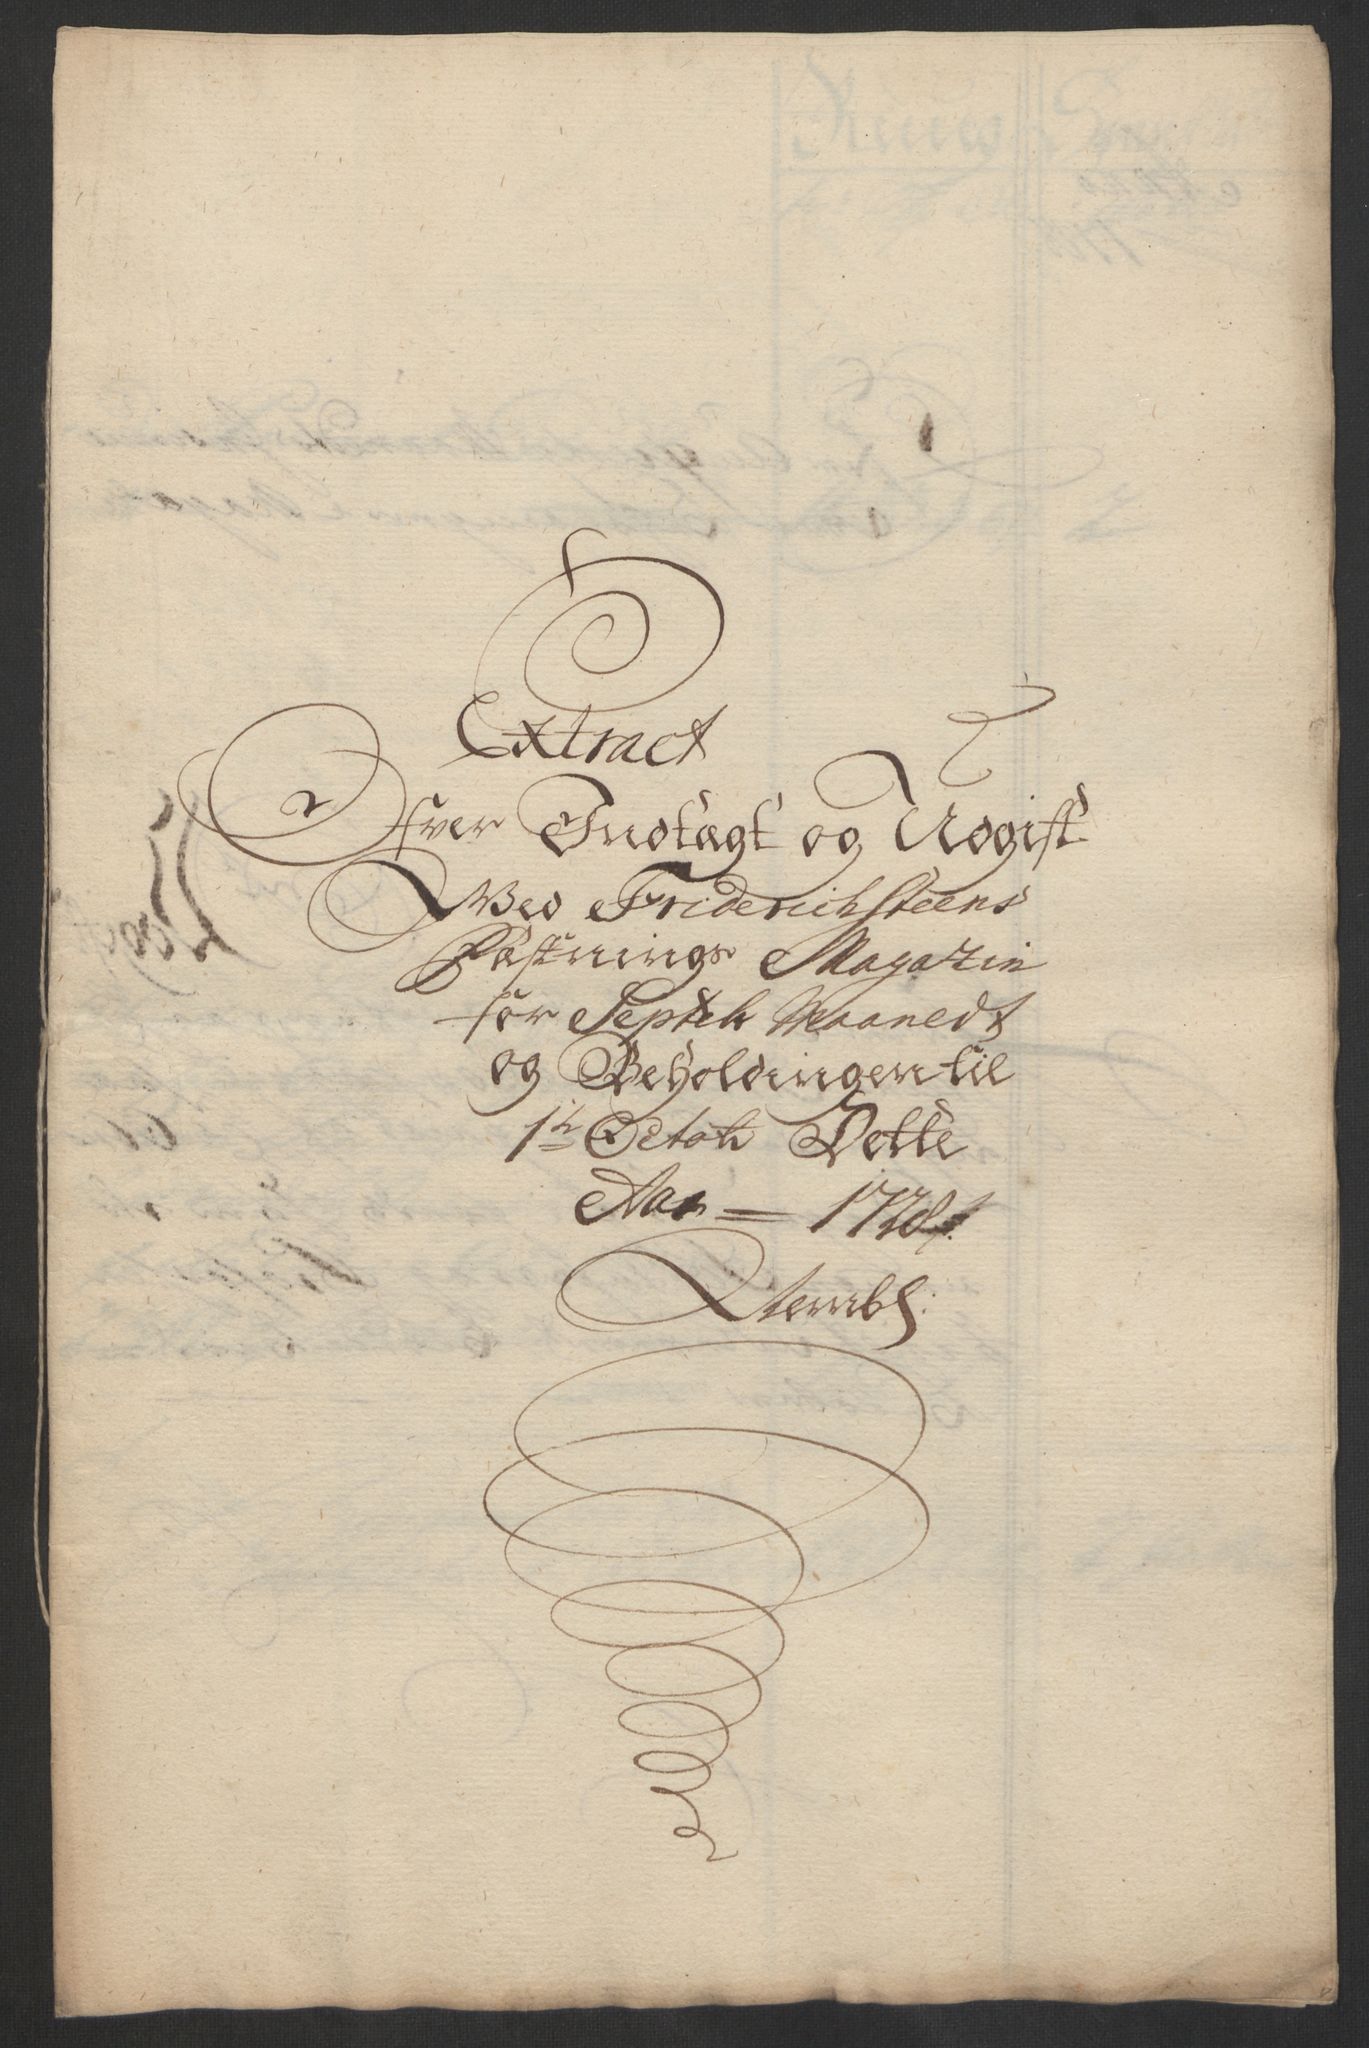 Extract
Ofver Indtægt og Udgift
Ved Friderichsteens
Fæstnings Magazin
for Septbr Maanedt
og Beholdingen til
1te Octobr Dette
Aar = 1728